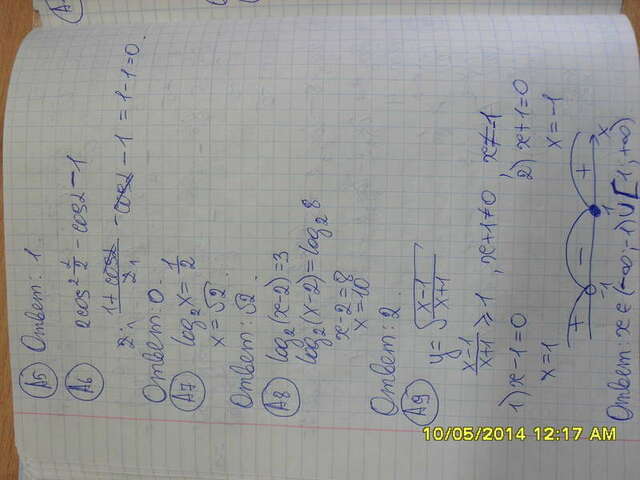 А5 Ответ: 1.
А6 2cos² α/2 - cosα - 1
2 · (1 + cosα)/2 - cosα - 1 = 1 - 1 = 0.
Ответ: 0.
А7 log₂x = 1/2
x = √2.
Ответ: √2.
А8 log₂(x-2) = 3
log₂(x-2) = log₂8
x-2 = 8
x = 10
Ответ: 2.
А9 y = √((x-1)/(x+1))
(x-1)/(x+1) ≥ 1, x+1 ≠ 0 x ≠ -1
1) x-1 = 0 2) x+1 = 0
x = 1 x = -1
+ -1 - 1 + x
Ответ: x ∈ (-∞; -1) ∪ [1; +∞)
10/05/2014 12:17 AM